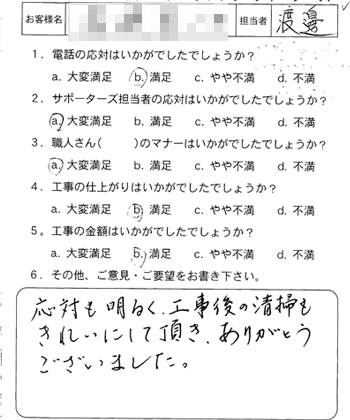 お客様名 担当者 渡邊
1．電話の応対はいかがでしたでしょうか？
a. 大変満足 b. 満足 c. やや不満 d. 不満
2．サポーターズ担当者の応対はいかがでしたでしょうか？
a. 大変満足 b. 満足 c. やや不満 d. 不満
3．職人さん(　　)のマナーはいかがでしたでしょうか？
a. 大変満足 b. 満足 c. やや不満 d. 不満
4．工事の仕上がりはいかがでしたでしょうか？
a. 大変満足 b. 満足 c. やや不満 d. 不満
5．工事の金額はいかがでしたでしょうか？
a. 大変満足 b. 満足 c. やや不満 d. 不満
6．その他、ご意見・ご要望をお書き下さい。
応対も明るく、工事後の清掃も
きれいにして頂き、ありがとう
ございました。